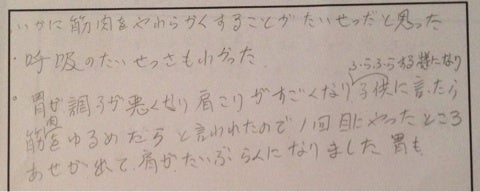 いかに筋肉をやわらかくすることがたいせつだと思った
・呼吸のたいせつさもわかった
ふらふらする様になり
・胃が調子が悪くなり肩こりがすごくなり子供に言ったら
筋肉をゆるめたらと言われたので1回目にやったところ
あせが出て、肩がだいぶらくになりました胃も